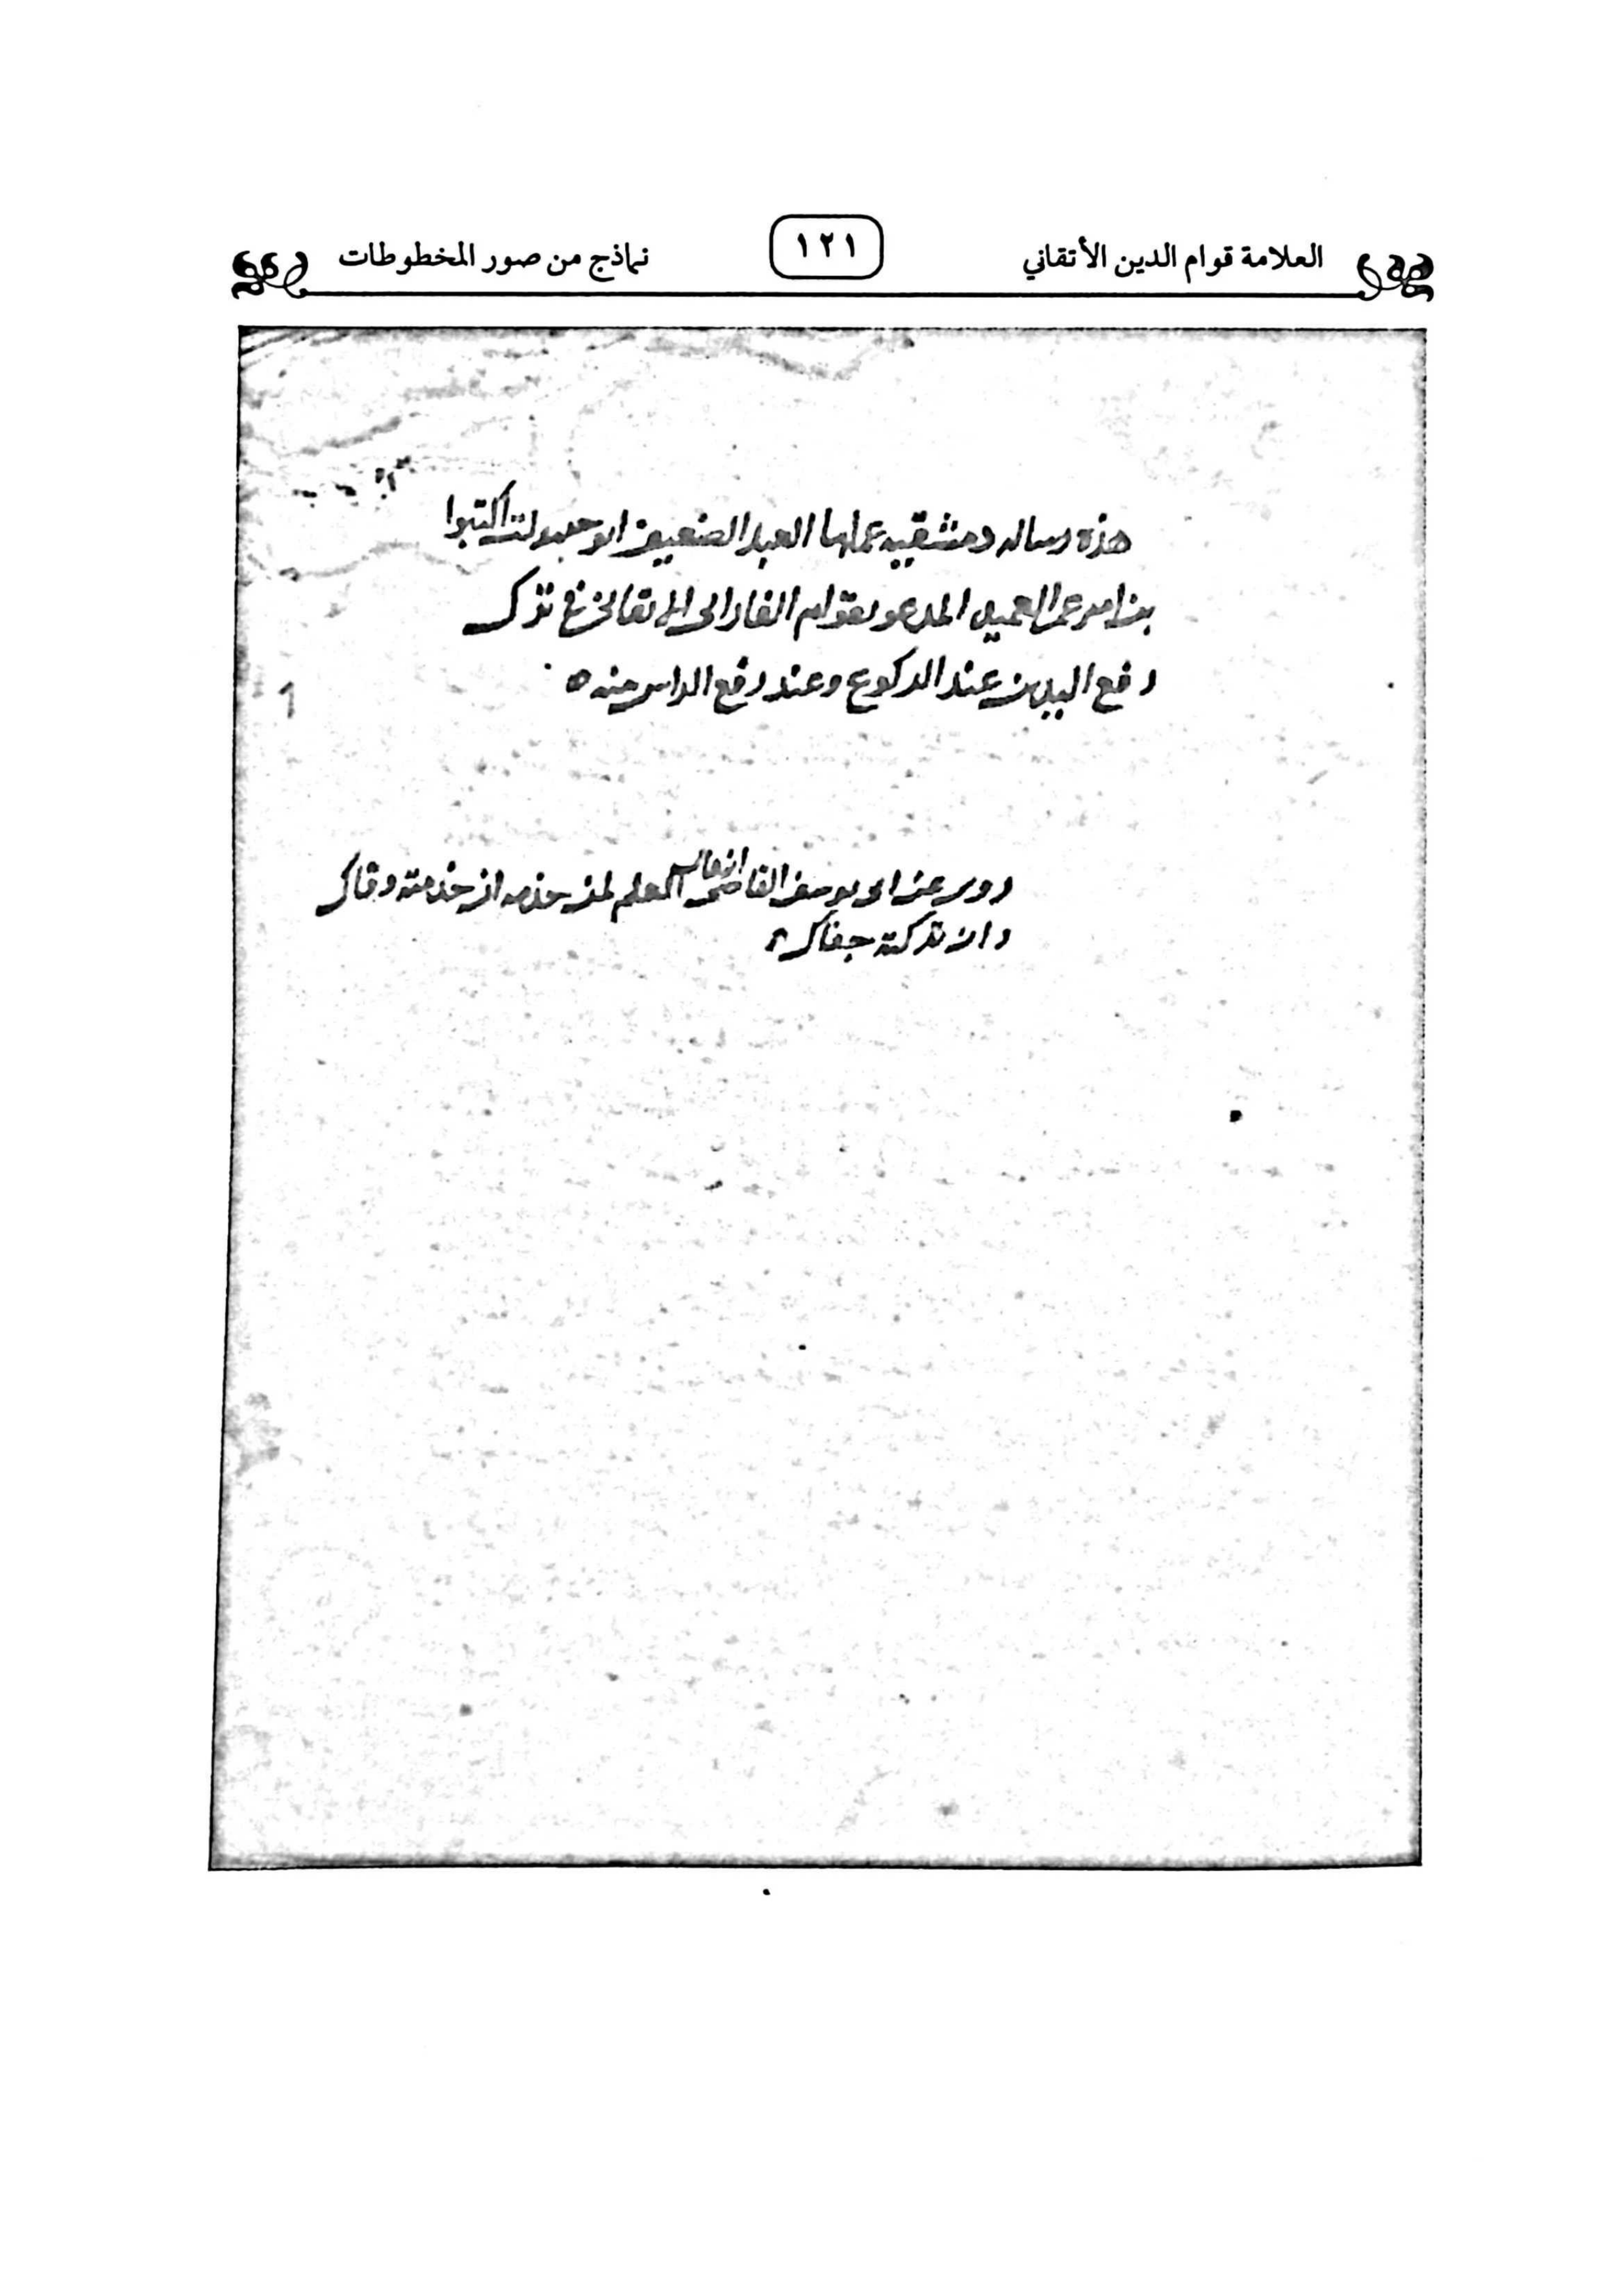 العلامة قوام الدين الأتقاني
١٢١
نماذج من صور المخطوطات
هذه رساله دمشقيه عملها العبد الضعيف ابو حنيفه
بن امير عمر العميد المدعو بقوام الفارابى الاتقانى فى ترك
رفع اليدين عند الركوع وعند رفع الراس منه ه
روى عن ابى يوسف القاضى انه قال العلم لمن خدمه ان خدمته وفاك
وان تركته جفاك